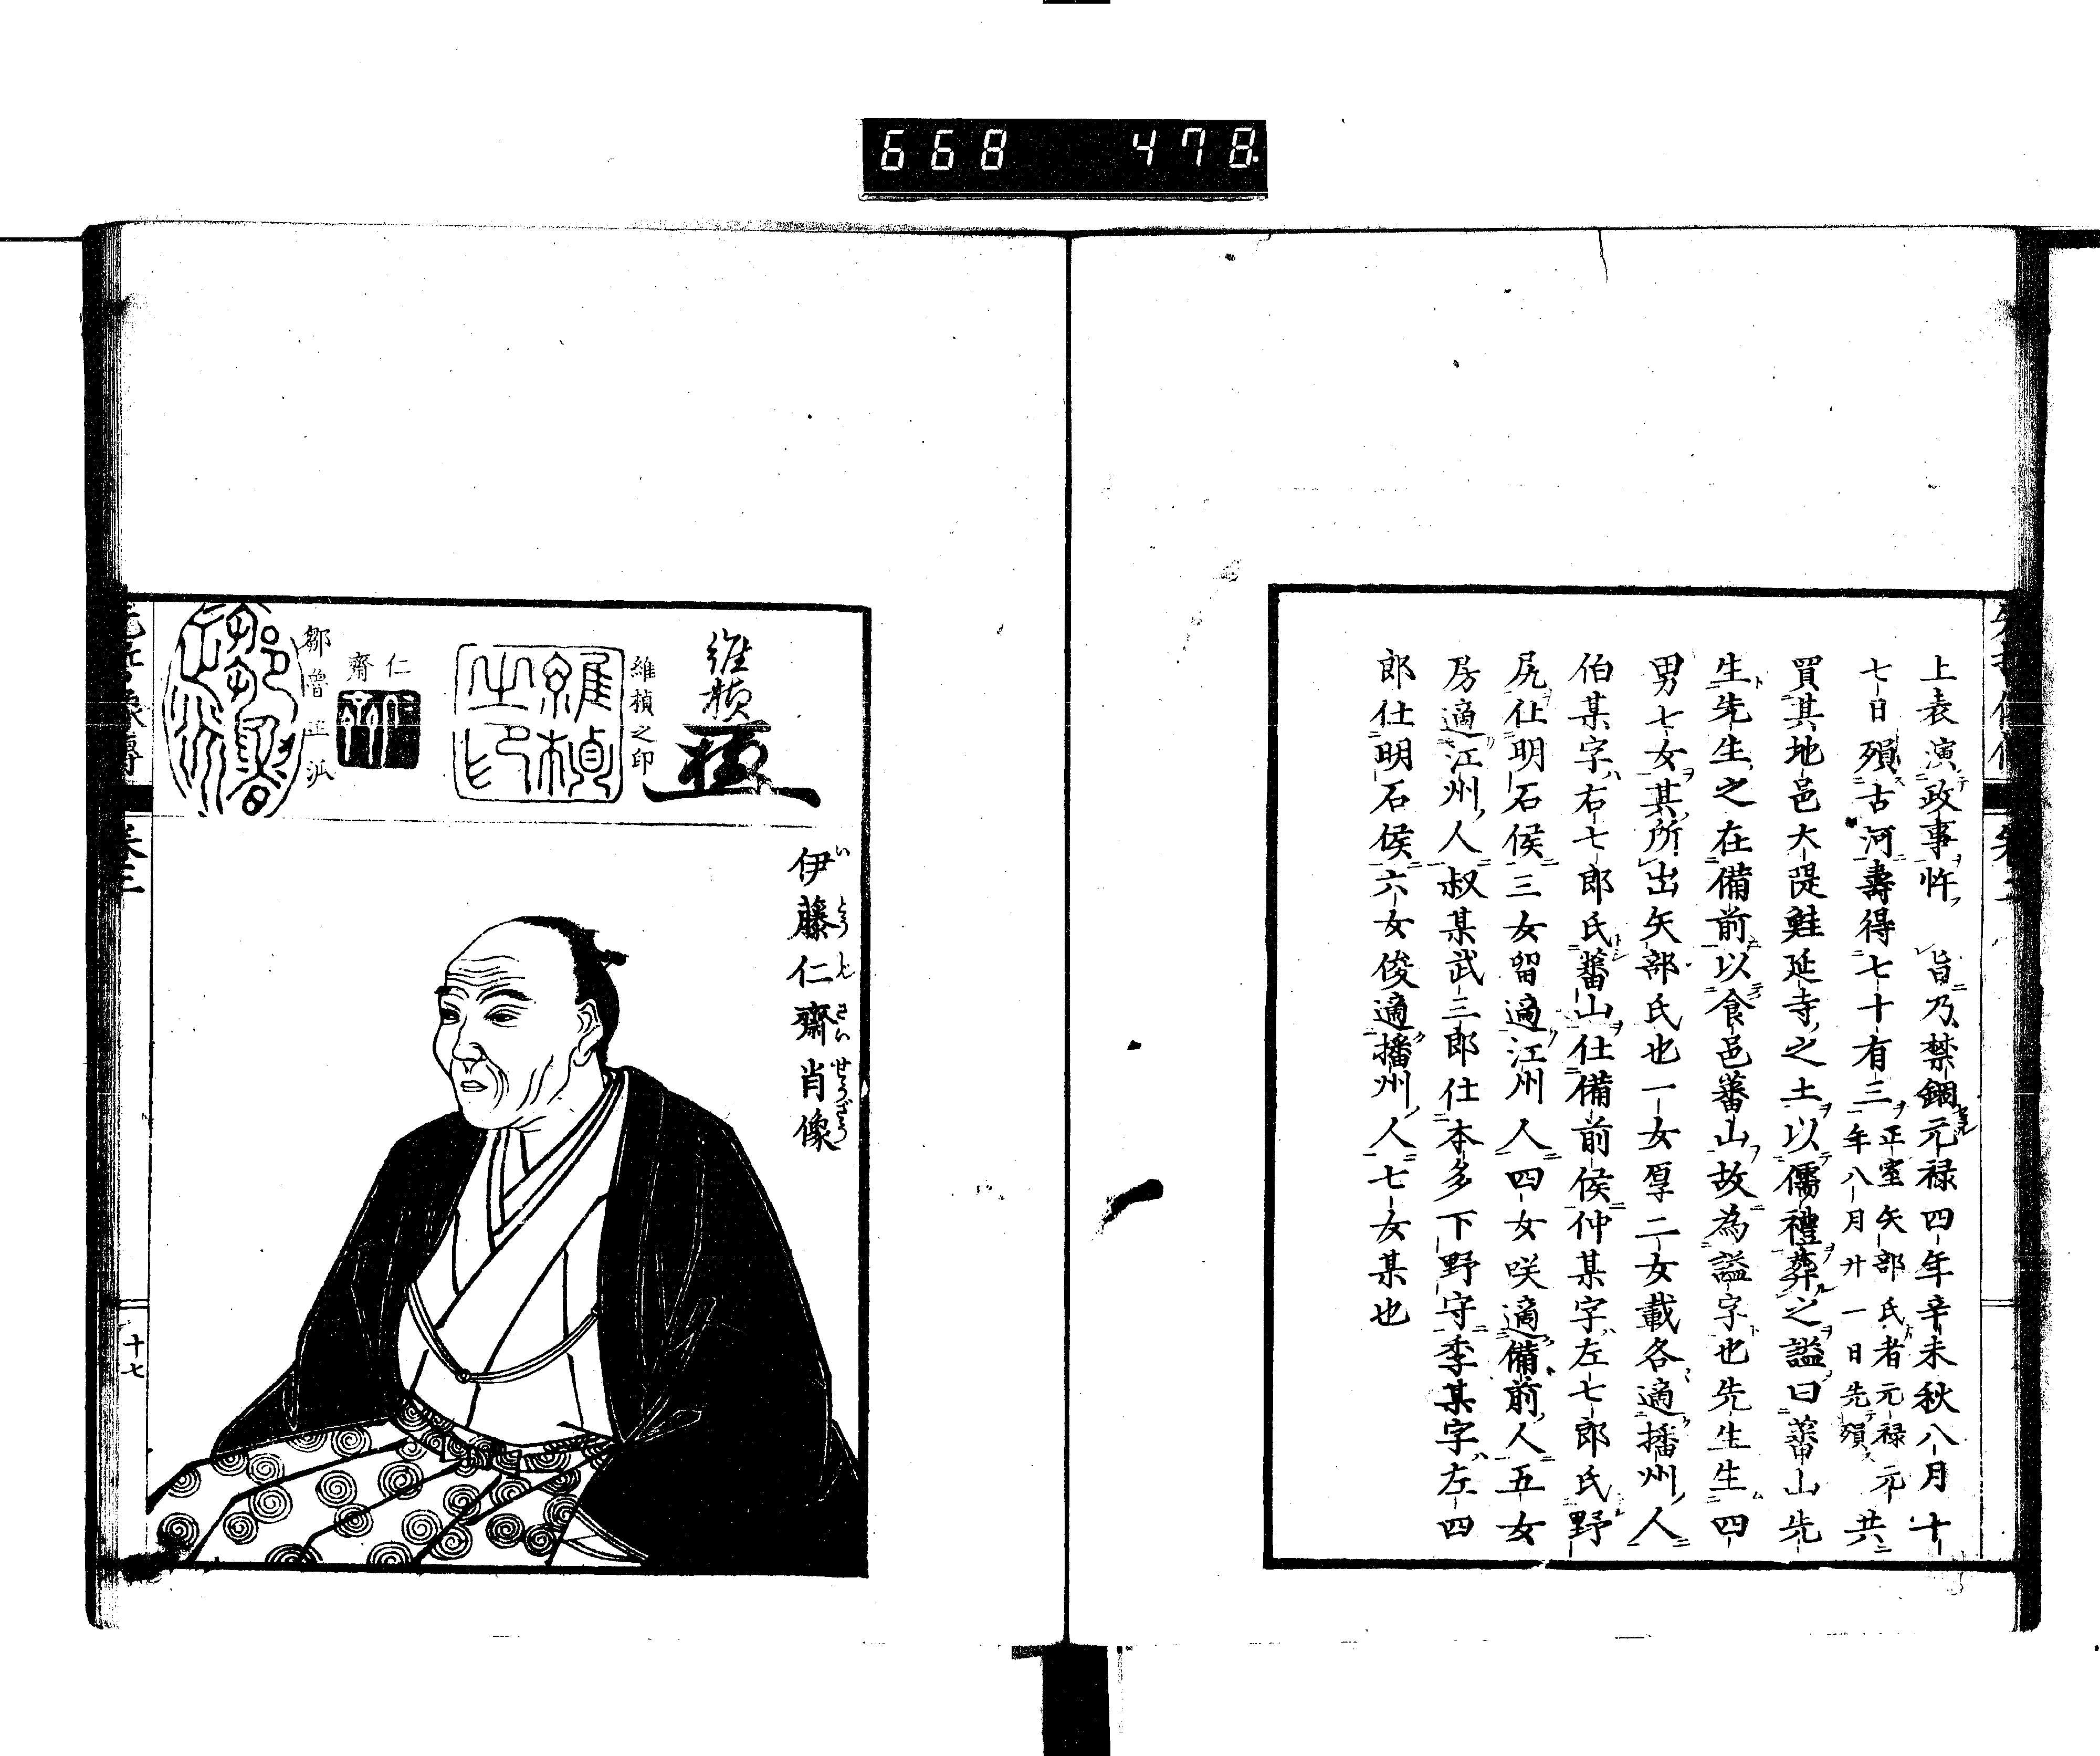 668 478
上表演政事忤 旨乃禁錮元禄四年辛未秋八月十
七日殞古河壽得七十有三
正室矢部氏者元禄元
年八月廿一日先殞
共
買其地邑大𨺻鮭延寺之土以儒禮葬之謚曰蕃山先
生先生之在備前以食邑蕃山故為謚字也先生生四
男七女其所出矢部氏也一女厚二女載各適播州人
伯某字右七郎氏蕃山仕備前侯仲某字左七郎氏野
尻仕明石侯三女留適江州人四女咲適備前人五女
房適江州人叔某武三郎仕本多下野守季某字左四
郎仕明石侯六女俊適播州人七女某也
維楨
維楨之印
維楨之印
仁齋
鄒魯正派
伊藤仁齋肖像
いとうじんさいせうざう
十七